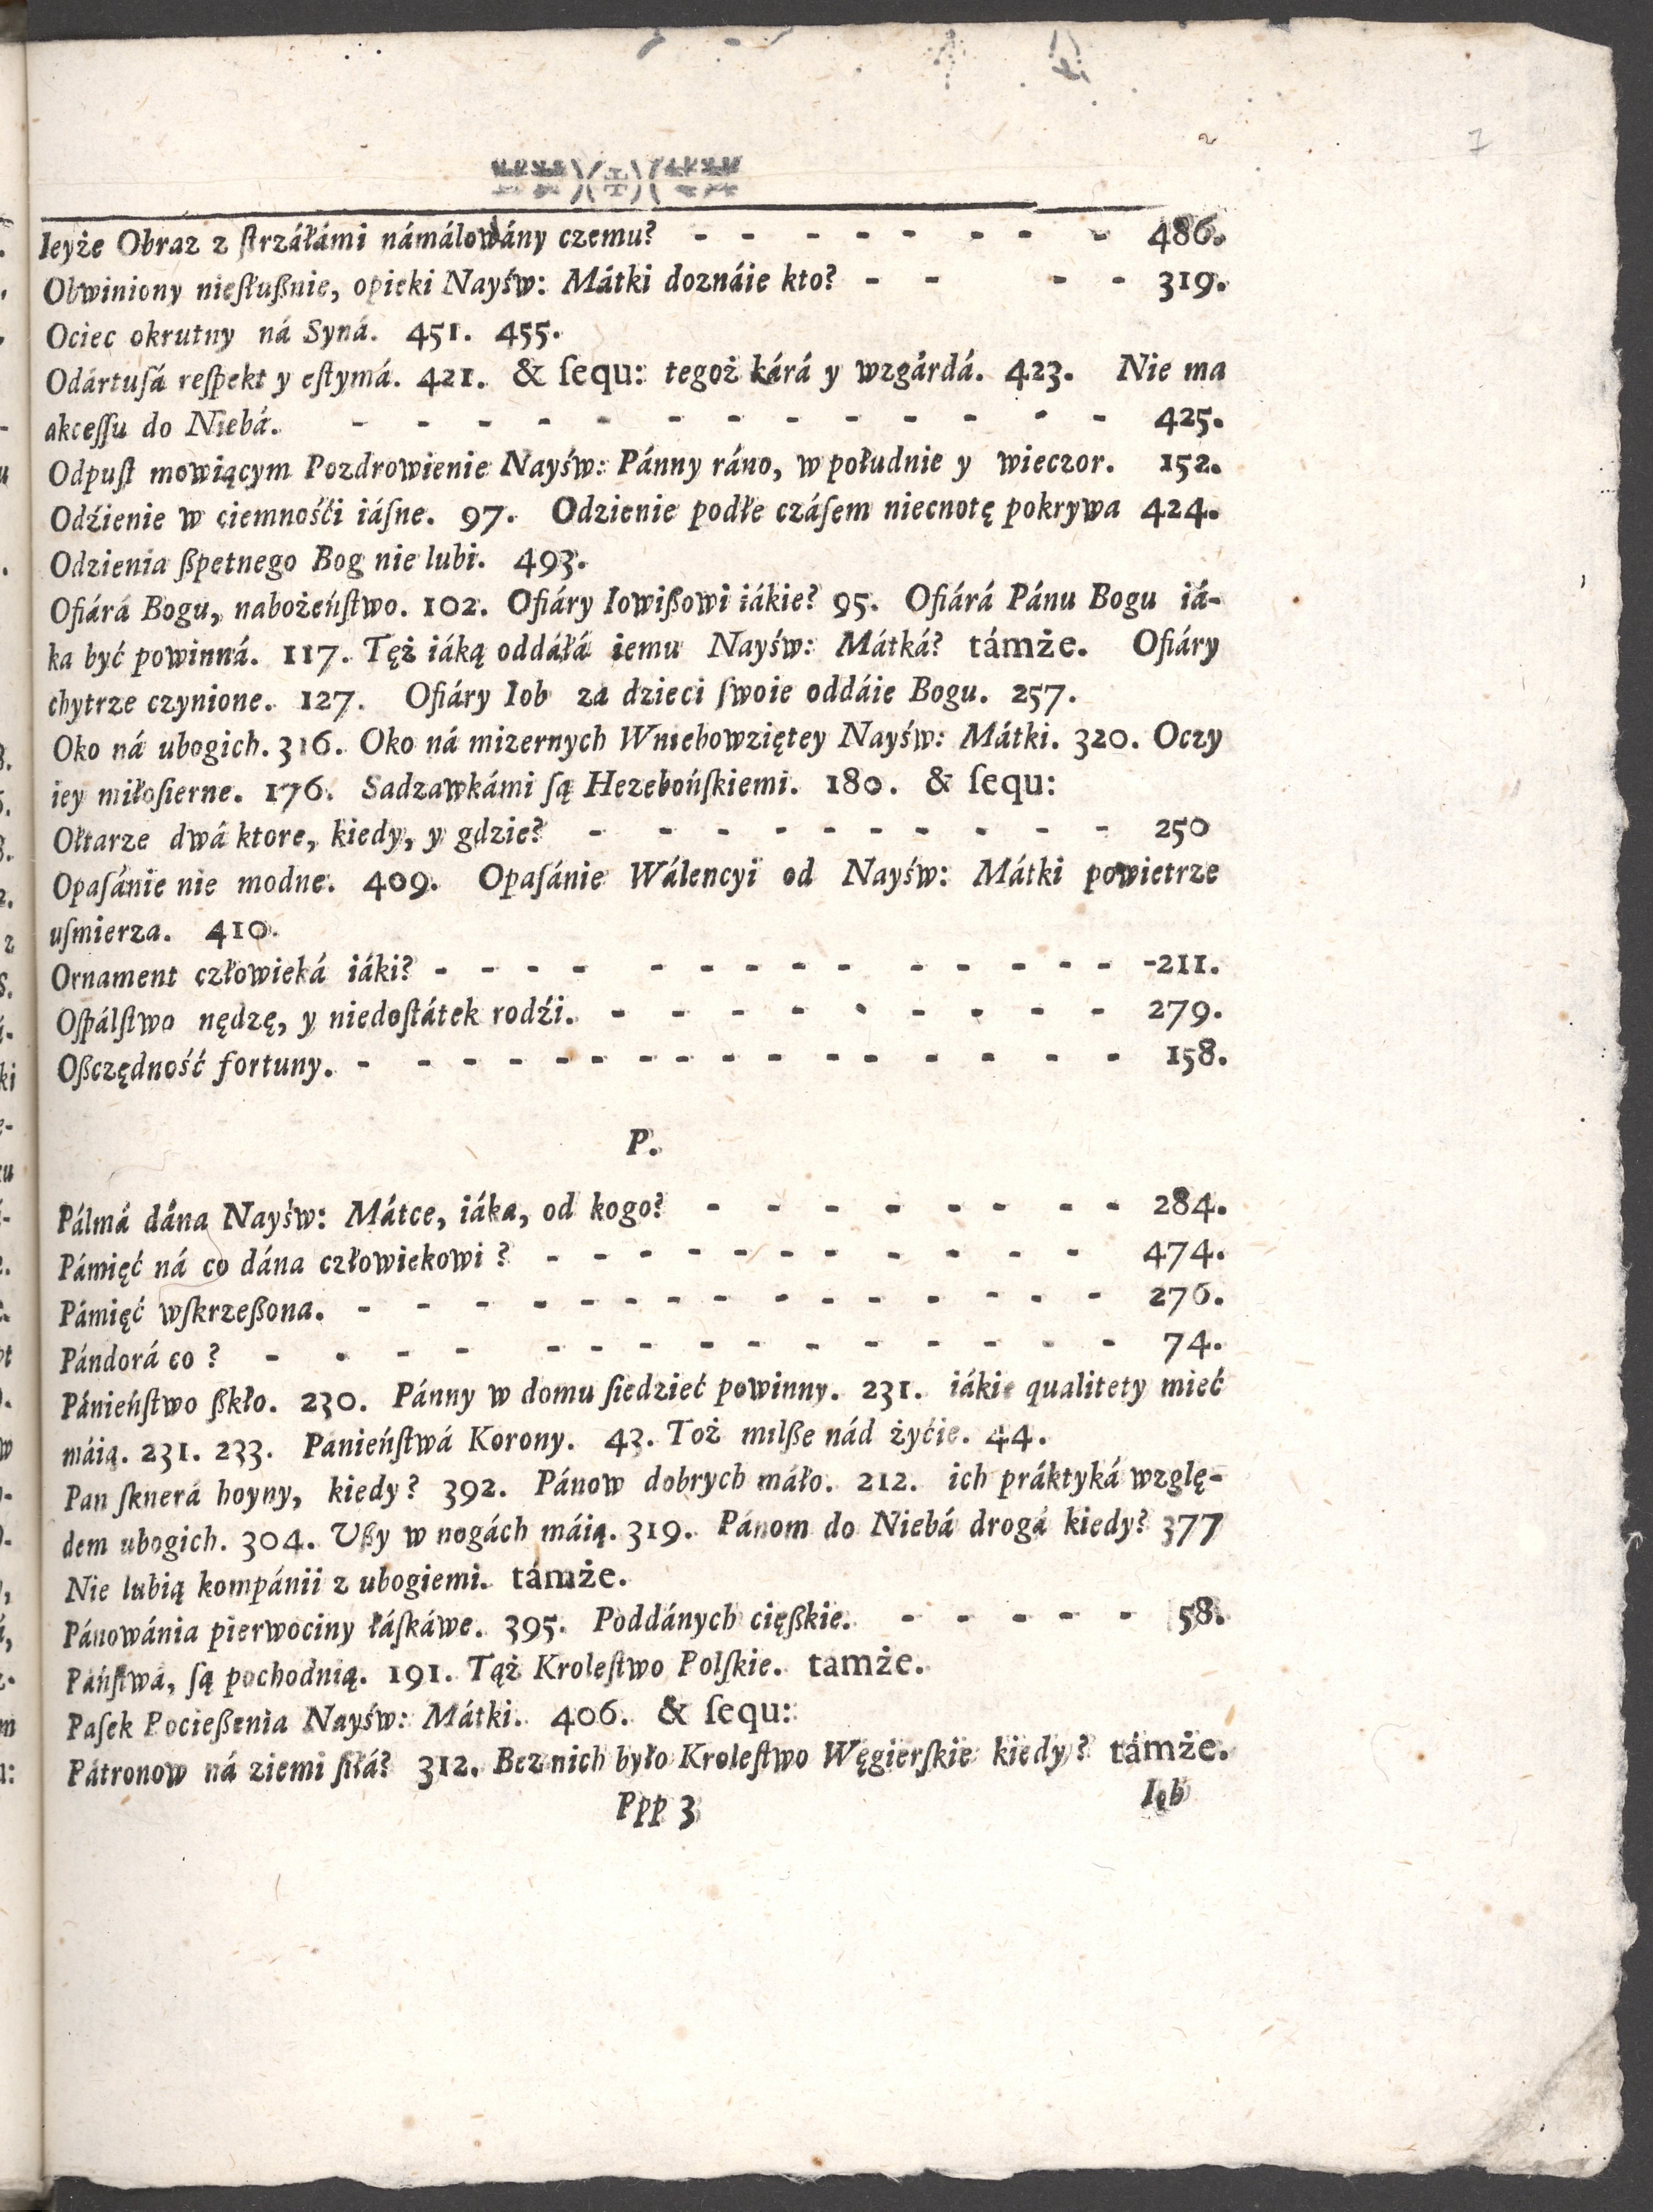 )(✠)(
Ieyże Obraz z ſtrzáłámi námálowány czemu? - - - - - - - - 486.
Obwiniony nieſłußnie, opieki Nayśw: Mátki doznáie kto? - - - - 319.
Ociec okrutny ná Syná. 451. 455.
Odártuſá reſpekt y eſtymá. 421. & ſequ: tegoż kárá y wzgárdá. 423. Nie ma
akceſſu do Niebá. - - - - - - - - - - - - - 425.
Odpuſt mowiącym Pozdrowienie Nayśw: Pánny ráno, w południe y wieczor. 152.
Odźienie w ciemnośći iáſne. 97. Odzienie podłe czáſem niecnotę pokrywa 424.
Odzienia ßpetnego Bog nie lubi. 493.
Ofiárá Bogu, nabożeńſtwo. 102. Ofiáry Iowißowi iákie? 95. Ofiárá Pánu Bogu iá-
ka być powinná. 117. Tęż iáką oddáłá iemu Nayśw: Mátká? támże. Ofiáry
chytrze czynione. 127. Ofiáry Iob za dzieci ſwoie oddáie Bogu. 257.
Oko ná ubogich. 316. Oko ná mizernych Wniebowziętey Nayśw: Mátki. 320. Oczy
iey miłoſierne. 176. Sadzawkámi ſą Hezebońſkiemi. 180. & ſequ:
Ołtarze dwá ktore, kiedy, y gdzie? - - - - - - - - - - 250
Opaſánie nie modne. 409. Opaſánie Wálencyi od Nayśw: Mátki powietrze
uſmierza. 410.
Ornament człowieká iáki? - - - - - - - - - - - - - - -211.
Oſpálſtwo nędzę, y niedoſtátek rodźi. - - - - - - - - - 279.
Oßczędność fortuny. - - - - - - - - - - - - - - - 158.
P.
Pálmá dána Nayśw: Mátce, iáka, od kogo? - - - - - - - - - 284.
Pámięć ná co dána człowiekowi ? - - - - - - - - - - - 474.
Pámięć wſkrzeßona. - - - - - - - - - - - - - - 276.
Pándorá co ? - - - - - - - - - - - - - - - 74.
Pánieńſtwo ßkło. 230. Pánny w domu ſiedzieć powinny. 231. iákie qualitety mieć
máią. 231. 233. Panieńſtwá Korony. 43. Toż milße nád żyćie. 44.
Pan ſknerá hoyny, kiedy? 392. Pánow dobrych máło. 212. ich práktyká wzglę-
dem ubogich. 304. Ußy w nogách máią. 319. Pánom do Niebá drogá kiedy? 377
Nie lubią kompánii z ubogiemi. támże.
Pánowánia pierwociny łáſkáwe. 395. Poddánych cięßkie. - - - - - 58.
Páńſtwá, ſą pochodnią. 191. Tąż Kroleſtwo Polſkie. tamże.
Paſek Pocießenia Nayśw: Mátki. 406. & ſequ:
Pátronow ná ziemi ſiłá? 312. Bez nich było Kroleſtwo Węgierſkie kiedy? támże.
Ppp 3 Iob